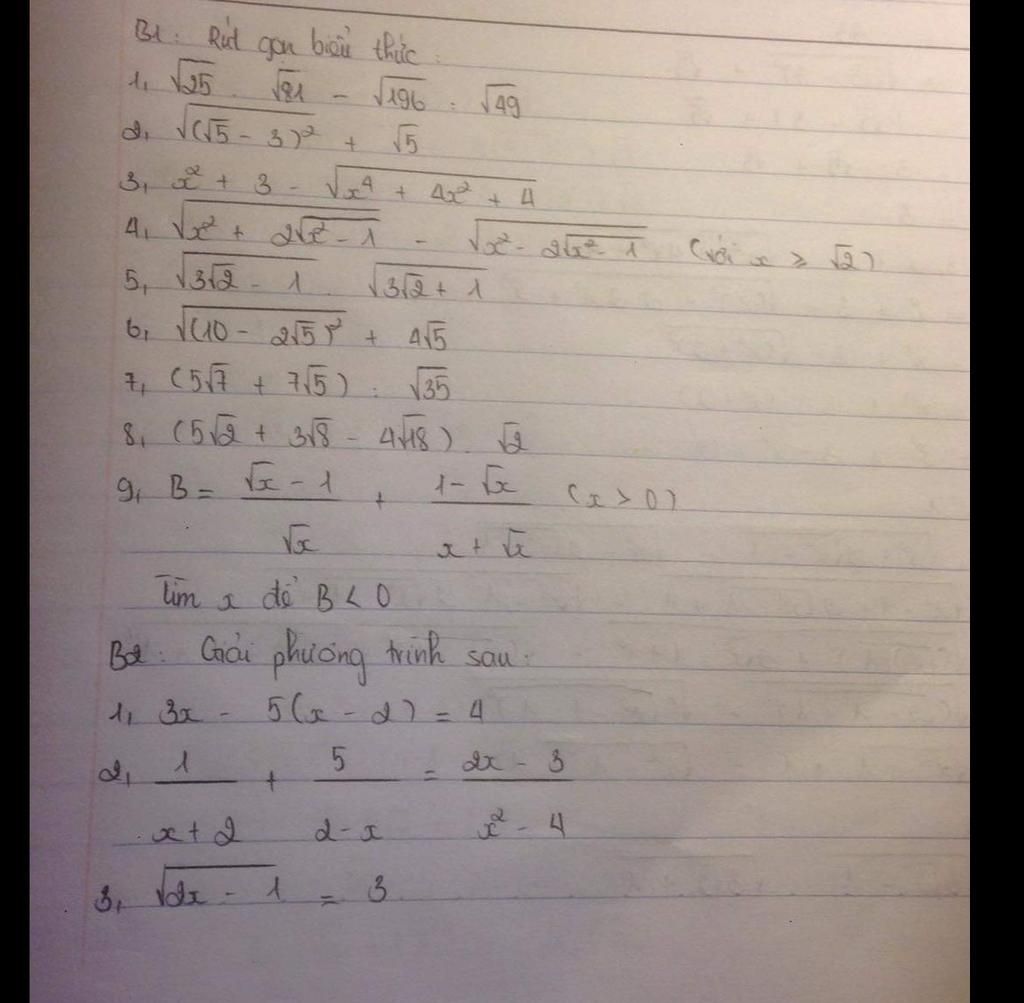 B1: Rút gọn biểu thức:
1, √25 . √81 - √196 : √49
2, √(√5 - 3)² + √5
3, x² + 3 - √(x⁴ + 4x² + 4)
4, √(x² + 2√(x² - 1)) - √(x² - 2√(x² - 1)) (với x ≥ √2)
5, √(3√2 - 1) . √(3√2 + 1)
6, √(10 - 2√5)² + 4√5
7, (5√7 + 7√5) : √35
8, (5√2 + 3√8 - 4√18) . √2
9, B = (√x - 1)/√x + (1 - √x)/(x + √x) (x > 0)
Tìm x để B < 0
B2: Giải phương trình sau:
1, 3x - 5(x - 2) = 4
2, 1/(x + 2) + 5/(2 - x) = (2x - 3)/(x² - 4)
3, √(2x - 1) = 3